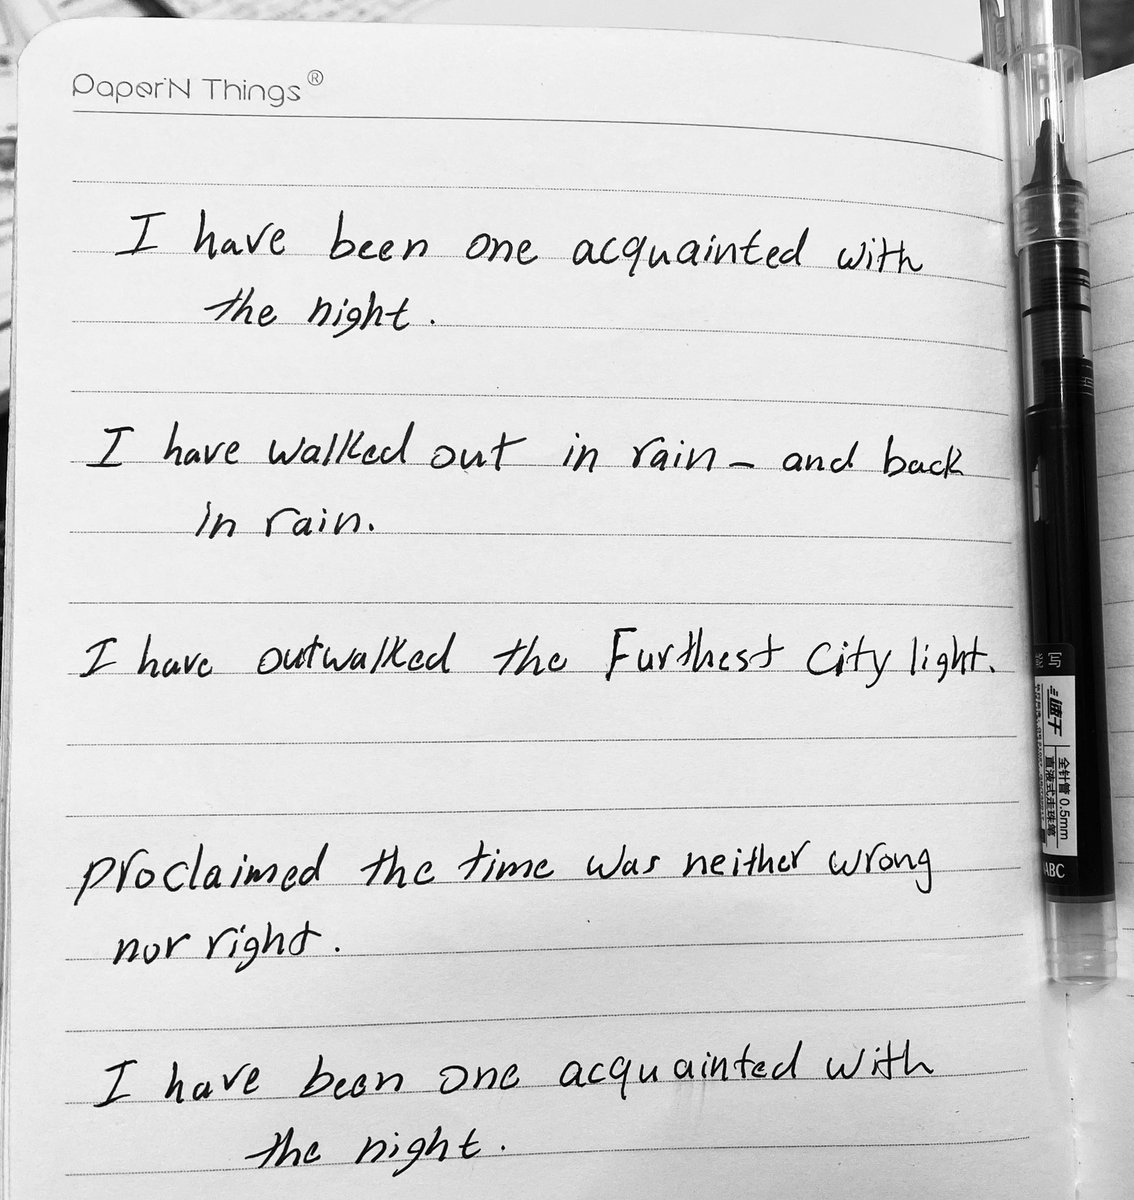 PaperN Things®
I have been one acquainted with
the night.
I have walked out in rain – and back
in rain.
I have outwalked the Furthest City light.
proclaimed the time was neither wrong
nor right.
I have been one acquainted with
the night.
全针管 0.5mm
直液式走珠笔
ABC